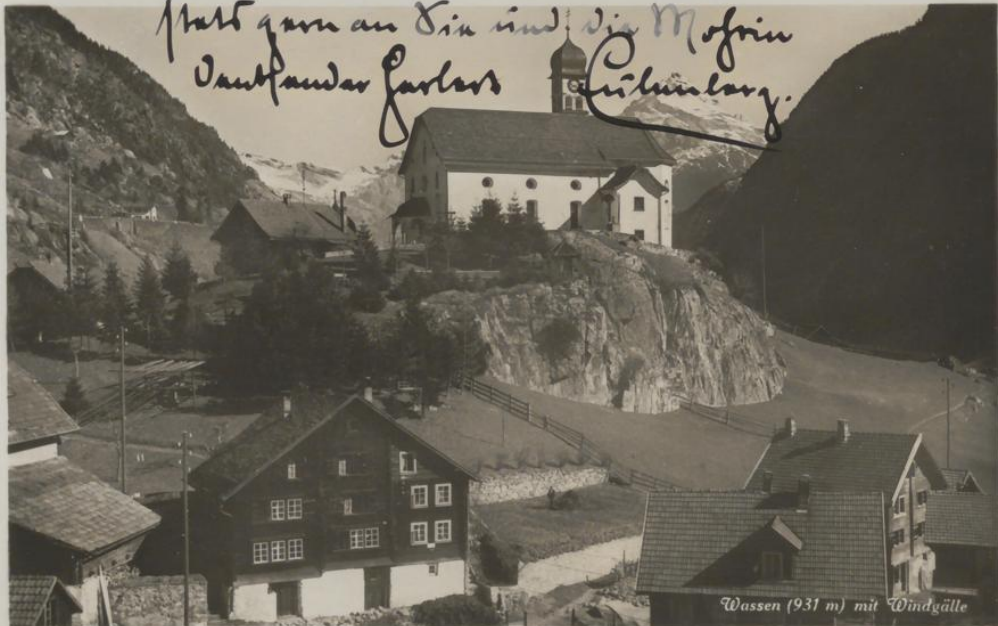 stets gern an Sie und die Mohrin
denkender Herbert Eulenberg.
Wassen (931 m) mit Windgälle